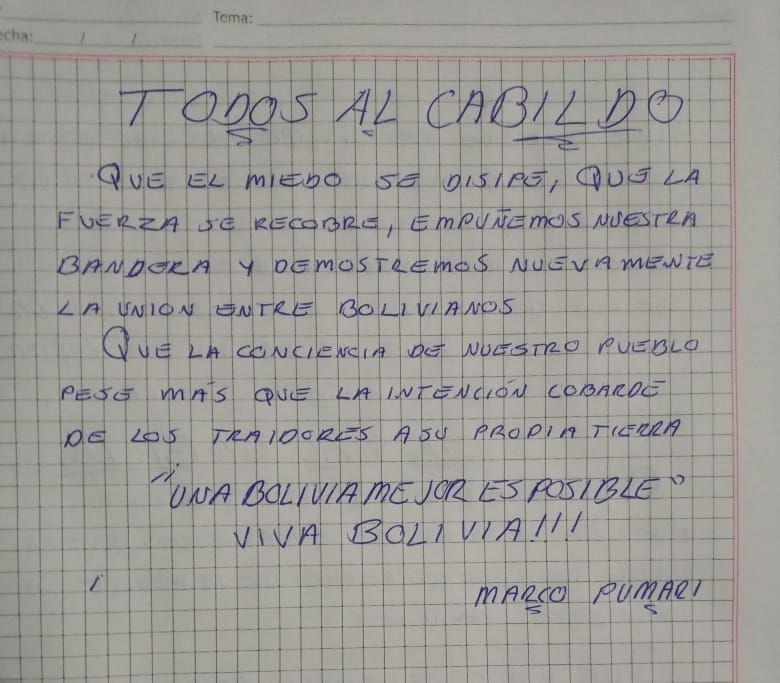 Tema:
echa: / /
TODOS AL CABILDO
QUE EL MIEDO SE DISIPE, QUE LA
FUERZA SE RECOBRE, EMPUÑEMOS NUESTRA
BANDERA Y DEMOSTREMOS NUEVAMENTE
LA UNION ENTRE BOLIVIANOS
QUE LA CONCIENCIA DE NUESTRO PUEBLO
PESE MÁS QUE LA INTENCIÓN COBARDE
DE LOS TRAIDORES A SU PROPIA TIERRA
"UNA BOLIVIA MEJOR ES POSIBLE"
VIVA BOLIVIA!!!
MARCO PUMARI